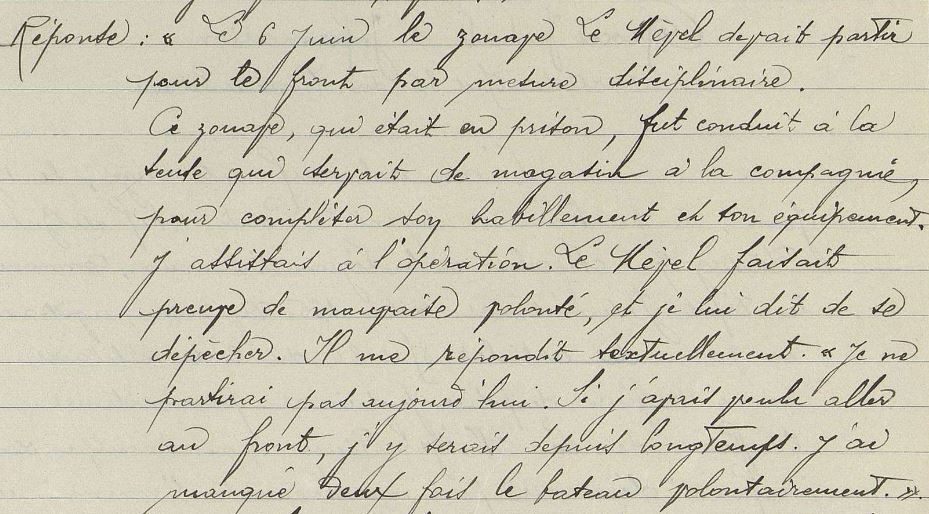 Réponse : « Le 6 Juin le zouave Le Hével devait partir
pour le front par mesure disciplinaire.
Ce zouave, qui était en prison, fut conduit à la
tente qui servait de magasin à la compagnie,
pour compléter son habillement et son équipement.
J'assistais à l'opération. Le Hével faisait
preuve de mauvaise volonté, et je lui dit de se
dépêcher. Il me répondit textuellement. « Je ne
partirai pas aujourd'hui. Si j'avais voulu aller
au front, j'y serais depuis longtemps. J'ai
manqué deux fois le bateau volontairement. ».